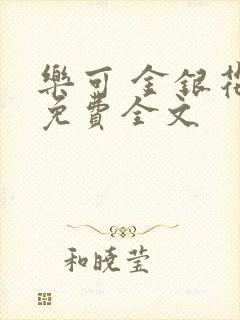 樂可 金銀花
免費全文
和曉莹